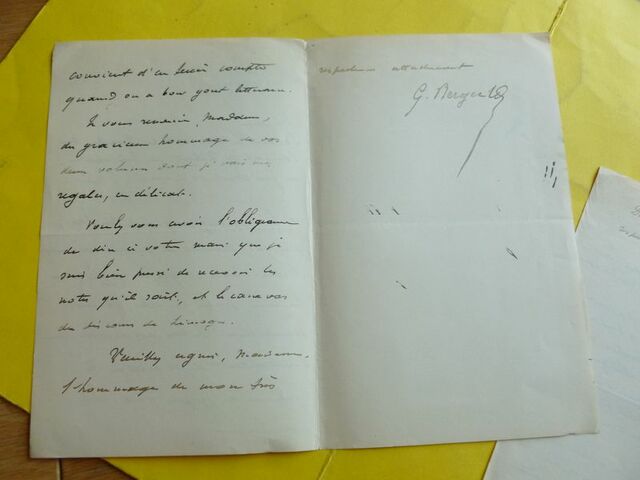 convient d'en tenir compte
quand on a bon gout littéraire.
Je vous remercie, Madame,
du gracieux hommage de vos
deux volumes dont je vais me
regaler, en délicat.
Veuillez vous avoir l'obligeance
de dire à votre mari que je
suis bien pressé de recevoir les
notes qu'il sait, et le canevas
du discours de Limoges.
Veuillez agréer, Madame,
l'hommage de mon très
respectueux attachement
G. Berger